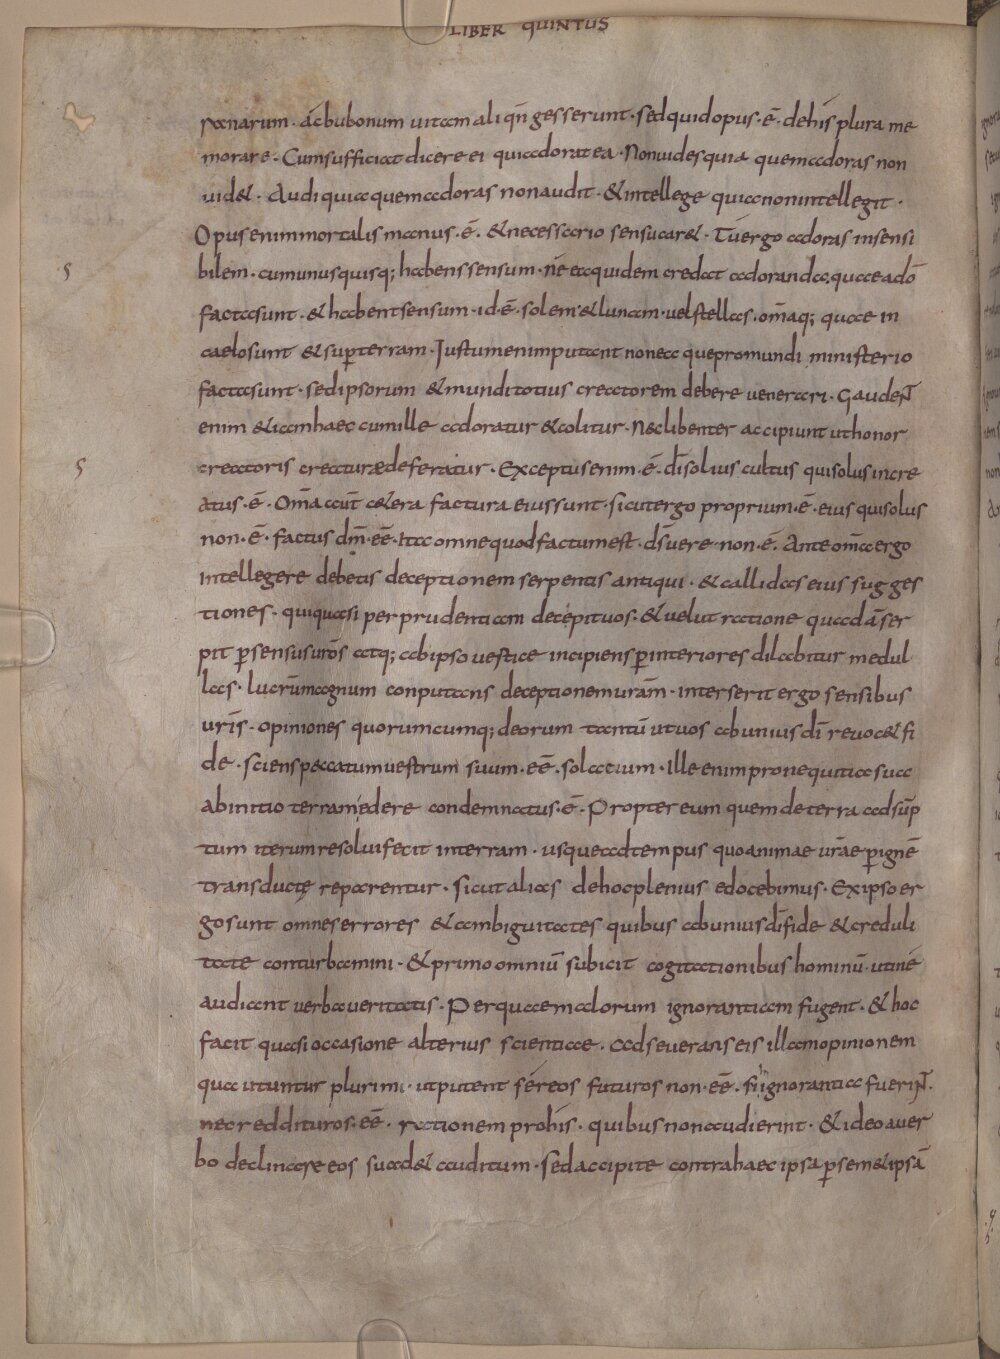 LIBER QUINTUS
ranarum · ac bubonum uitam aliqn̄ gesserunt · sed quid opus · ē · de his plura me
morare · Cum sufficiat dicere ei qui adorat ea · Non uides quia quem adoras non
uid& · Audi quia quem adoras non audit · & intellege quia non intellegit ·
Opus enim mortalis manus · ē · & necessario sensu car& · Tu ergo adoras insensi
bilem · cum unusquisq; habens sensum · nē ea quidem credat adoranda · quae a dō
facta sunt · & habent sensum · id · ē · solem & lunam · uel stellas · om̄aq; quae in
caelo sunt & sup̄ terram · Iustum enim putant non ea que pro mundi ministerio
facta sunt · sed ipsorum & mundi totius creatorem debere uenerari · Gaudent
enim & iam haec cum ille adoratur & colitur · Nec libenter accipiunt ut honor
creatoris creaturae deferatur · Exceptus enim · ē · dī solius cultus qui solus incre
atus · ē · Om̄a aut̄ c&era factura eius sunt · sicut ergo proprium · ē · eius qui solus
non · ē · factus dm̄ · eē · Ita omne quod factum est · ds̄ uere non · ē · Ante om̄a ergo
intellegere debetis deceptionem serpentis antiqui · & callidas eius sugges
tiones · qui quasi per prudentiam decepit uos · & uelut ratione quadā ser
pit p sensus urōs atq; ab ipso uestice incipiens p interiores dilabitur medul
las · lucrū magnum conputans deceptionem urām · inserit ergo sensibus
urīs · opiniones quorumcumq; deorum tantū ut uos ab unius dī reuoc& fi
de · sciens peccatum uestrum suum · eē · solacium · Ille enim pro nequitia sua
ab initio terram edere condemnatus · ē · Propter eum quem de terra adsūp
tum iterum resolui fecit in terram · usque ad tempus quo animae urāe p ignē
transductę reparentur · sicut alias de hoc plenius edocebimus · Ex ipso er
go sunt omnes errores & ambiguitates quibus ab unius dī fide & creduli
tate conturbamini · & primo omniū subicit cogitationibus hominū · ut nē
audiant uerba ueritatis · Per quae malorum ignorantiam fugent · & hoc
facit quasi occasione alterius scientiae · Adseuerans eis illam opinionem
qua utuntur plurimi · ut putent se reos futuros non · eē · si ignorantia fuerint ·
nec reddituros · eē · rationem pro his · quibus non audierint · & ideo a uer
bo declinare eos suad& auditum · sed accipite contra haec ipsa p sem&ipsā